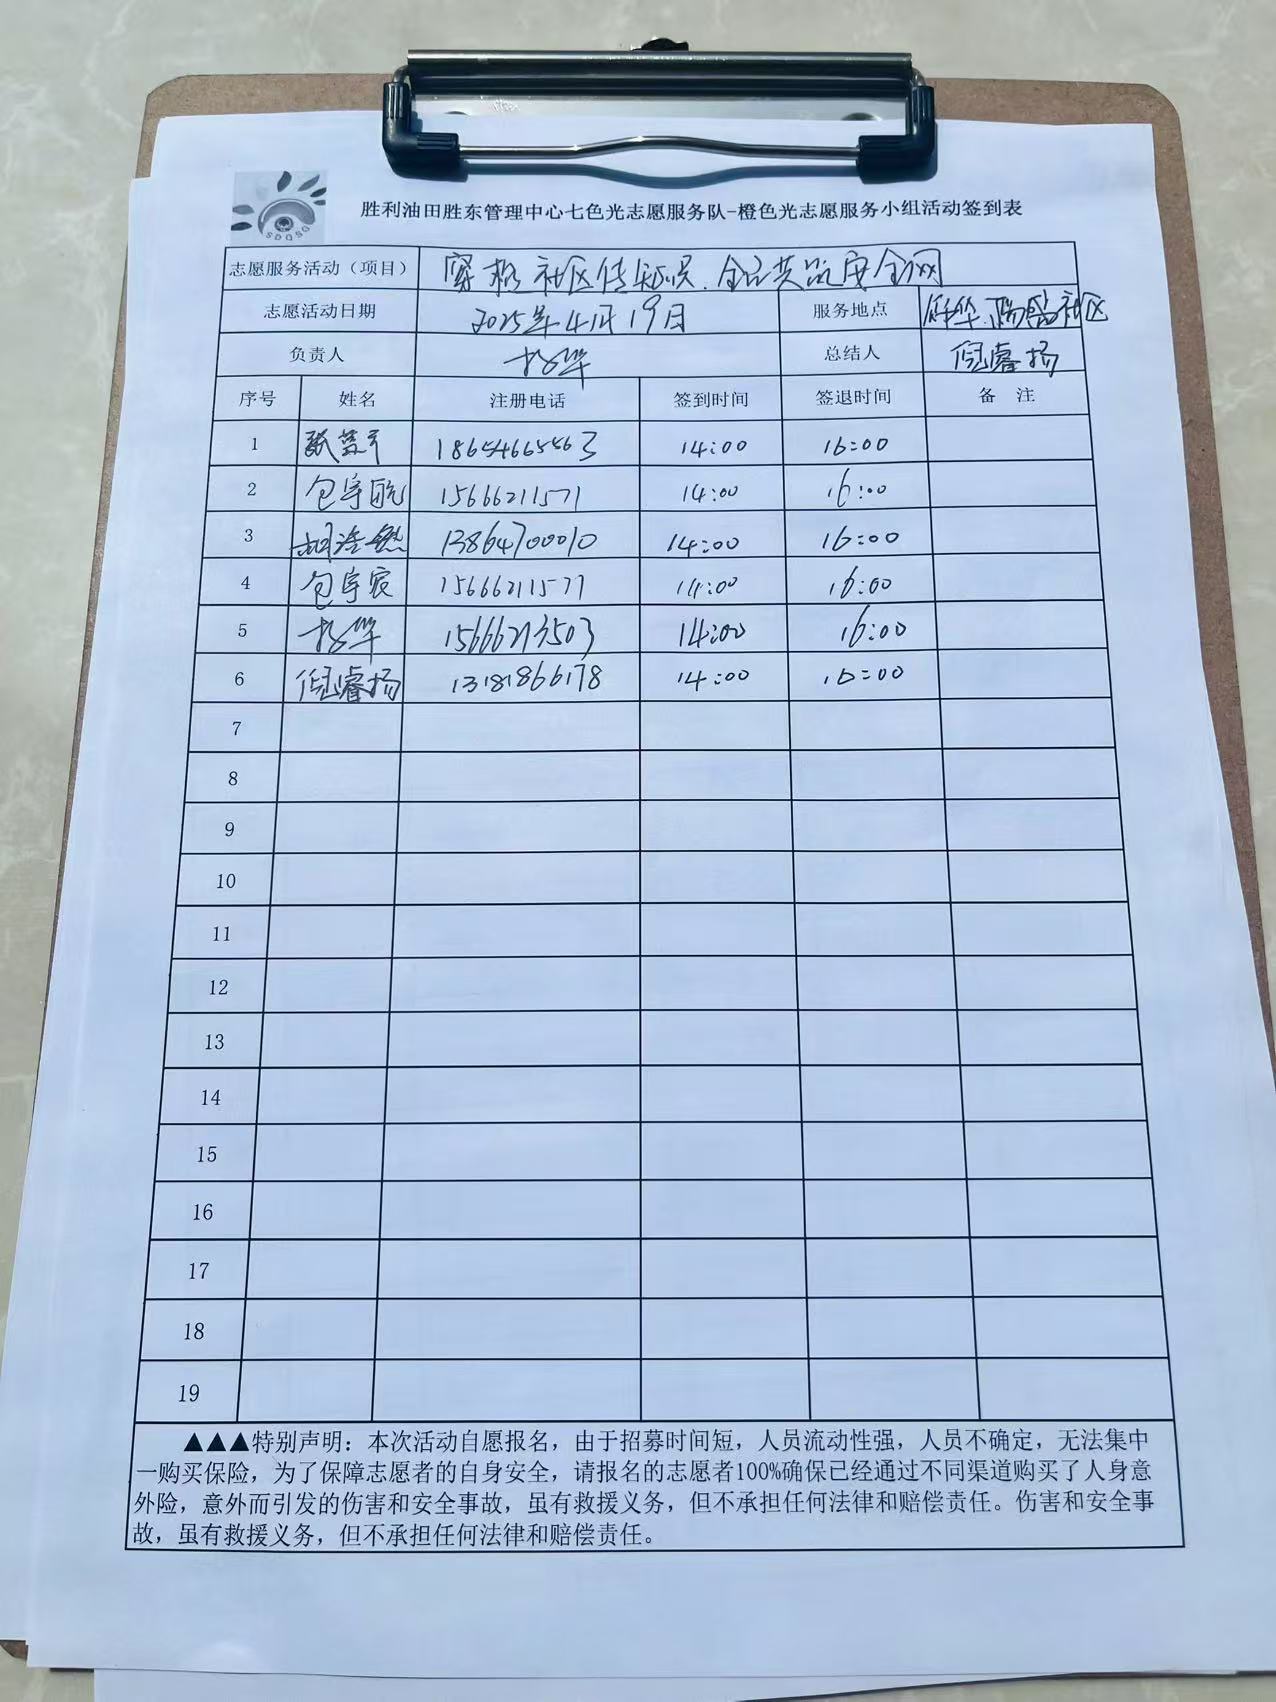 SDQSG
胜利油田胜东管理中心七色光志愿服务队-橙色光志愿服务小组活动签到表
志愿服务活动（项目） 穿梭社区传知识.全民共筑安全网
志愿活动日期 2025年4月19日 服务地点 社区
负责人 杨华 总结人 倪睿扬
序号 姓名 注册电话 签到时间 签退时间 备 注
1 18654665563 14:00 16:00
2 包宇航 15666211571 14:00 16:00
3 胡浩然 13864700010 14:00 16:00
4 包宇宸 15666211571 14:00 16:00
5 杨华 15666213503 14:00 16:00
6 倪睿扬 13181866178 14:00 16:00
7
8
9
10
11
12
13
14
15
16
17
18
19
▲▲▲特别声明：本次活动自愿报名，由于招募时间短，人员流动性强，人员不确定，无法集中
一购买保险，为了保障志愿者的自身安全，请报名的志愿者100%确保已经通过不同渠道购买了人身意
外险，意外而引发的伤害和安全事故，虽有救援义务，但不承担任何法律和赔偿责任。伤害和安全事
故，虽有救援义务，但不承担任何法律和赔偿责任。